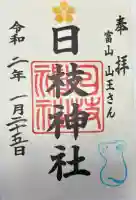 奉拝
富山 山王さん
日枝神社
日枝神社
令和二年一月二十五日